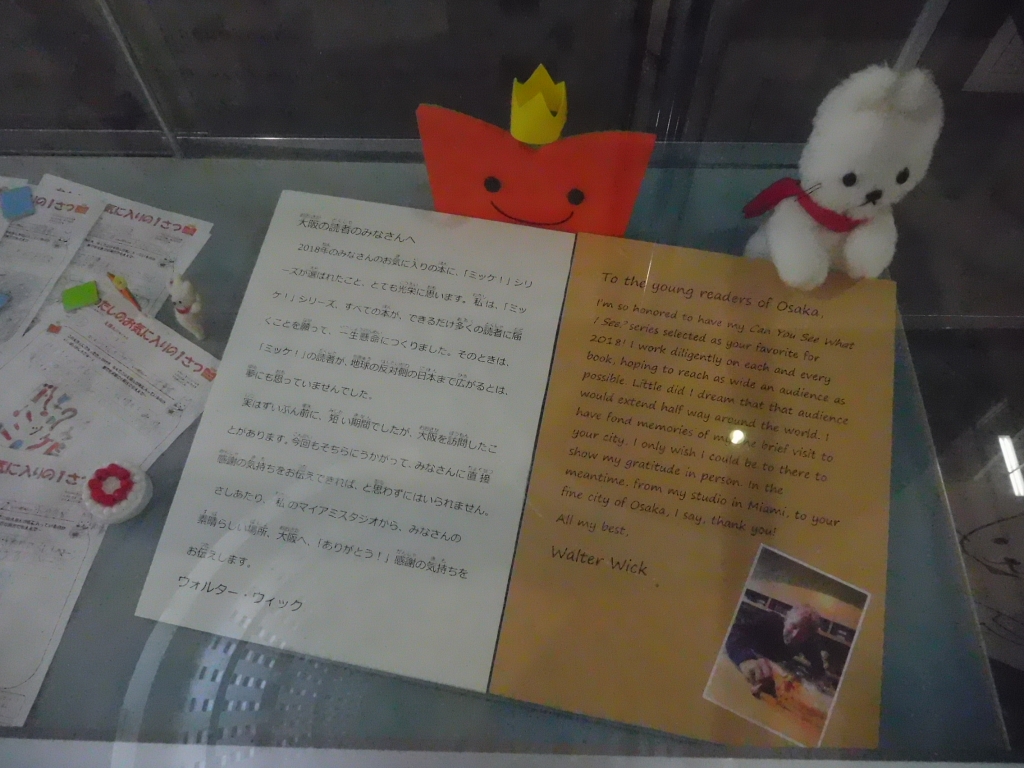 気に入りの1さつ
気に入りの1さつ
わたしのお気に入りの1さつ
気に入りの1さつ
大阪の読者のみなさんへ
2018年のみなさんのお気に入りの本に、「ミッケ!」シリ
ーズが選ばれたこと、とても光栄に思います。私は、「ミッ
ケ!」シリーズ、すべての本が、できるだけ多くの読者に届
くことを願って、一生懸命につくりました。そのときは、
「ミッケ!」の読者が、地球の反対側の日本まで広がるとは、
夢にも思っていませんでした。
実はずいぶん前に、短い期間でしたが、大阪を訪問したこ
とがあります。今回もそちらにうかがって、みなさんに直接
感謝の気持ちをお伝えできれば、と思わずにはいられません。
さしあたり、私のマイアミスタジオから、みなさんの
素晴らしい場所、大阪へ、「ありがとう!」感謝の気持ちを
お伝えします。
ウォルター・ウィック
To the young readers of Osaka,
I'm so honored to have my "Can You See What
I See?" series selected as your favorite for
2018! I work diligently on each and every
book, hoping to reach as wide an audience as
possible. Little did I dream that that audience
would extend half way around the world. I
have fond memories of my one brief visit to
your city. I only wish I could be to there to
show my gratitude in person. In the
meantime, from my studio in Miami, to your
fine city of Osaka, I say, thank you!
All my best,
Walter Wick